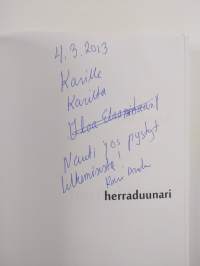 4.3.2013
Karille
Karilta
Iloa
Nauti jos pystyt
lukemisesta!
herraduunari